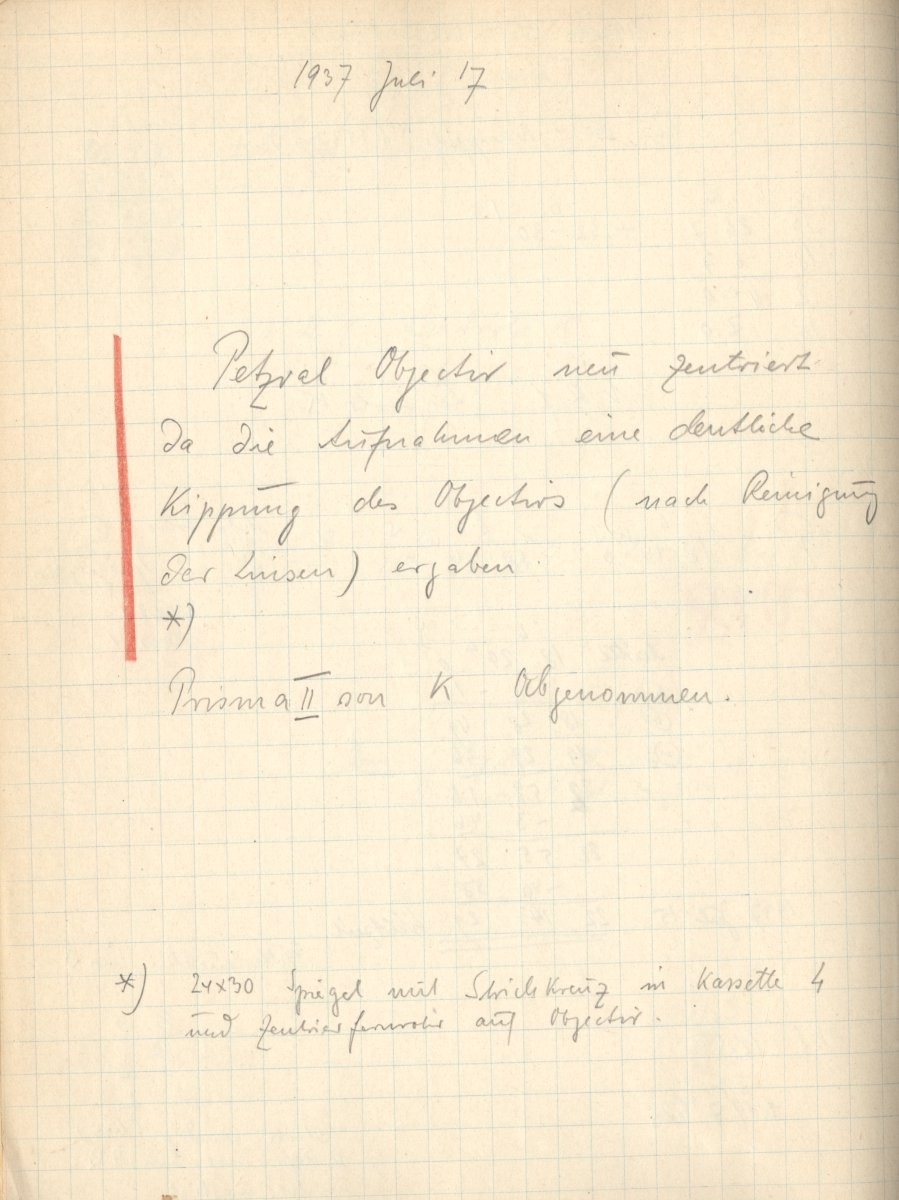 1937 Juli 17
Petzval Objectiv neu zentriert
da die Aufnahmen eine deutliche
Kippung des Objectivs (nach Reinigung
der Linsen) ergaben
*)
Prisma II von K Abgenommen.
*) 24x30 Spiegel mit Strichkreuz in Kassette 4
und Zentrierfernrohr auf Objectiv.